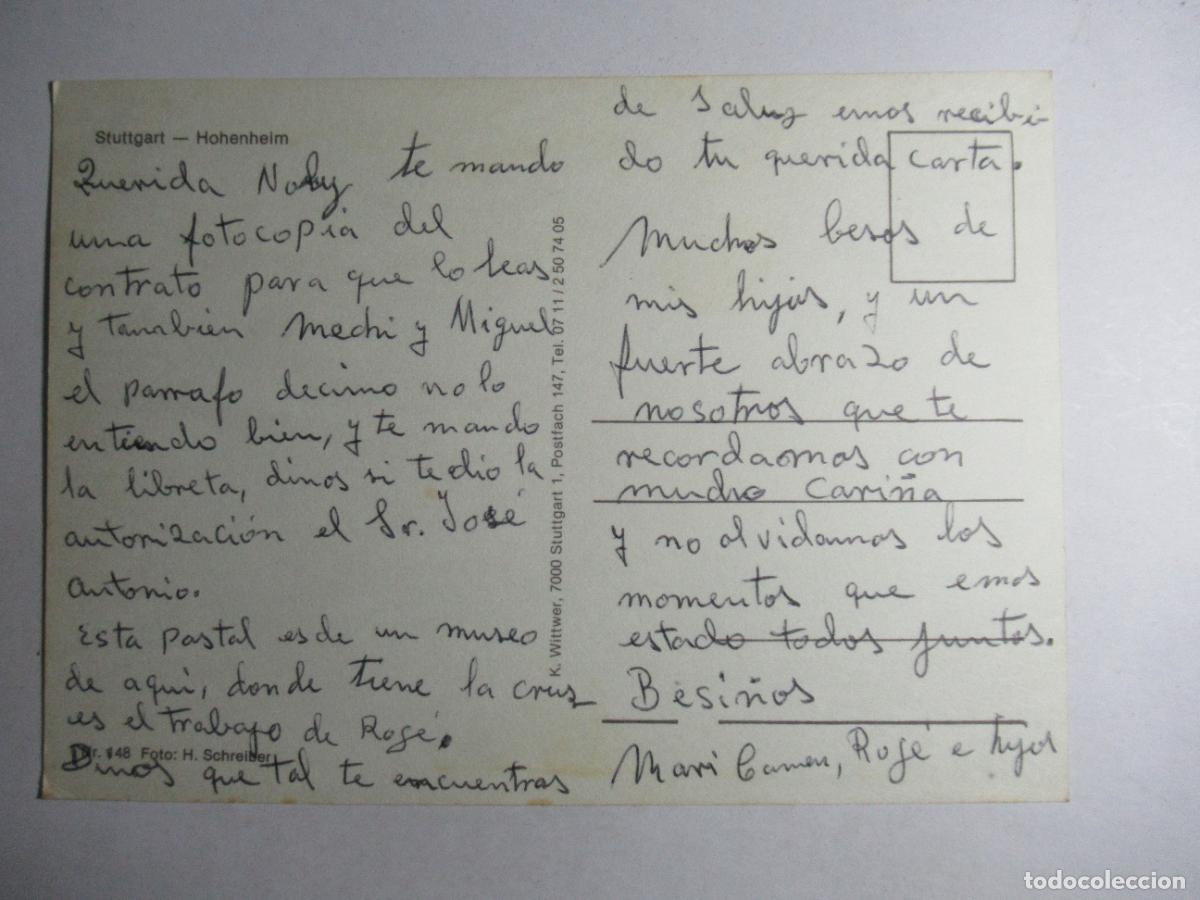 Stuttgart — Hohenheim
Querida Noby te mando
una fotocopia del
contrato para que lo leas
y también Mechi y Miguel
el parrafo decimo no lo
entiendo bien, y te mando
la libreta, dinos si te dio la
autorización el Sr. José
Antonio.
Esta postal es de un museo
de aqui, donde tiene la cruz
es el trabajo de Rogé.
Nr. 148 Foto: H. Schreiber
Dinos que tal te encuentras
K. Wittwer, 7000 Stuttgart 1, Postfach 147, Tel. 07 11 / 2 50 74 05
de saluz emos recibi
do tu querida carta.
Muchos besos de
mis hijos, y un
fuerte abrazo de
nosotros que te
recordaomos con
mucho cariña
y no olvidamos los
momentos que emos
estado todos juntos.
Besiños
Mari Carmen, Rogé e hijos
todocoleccion